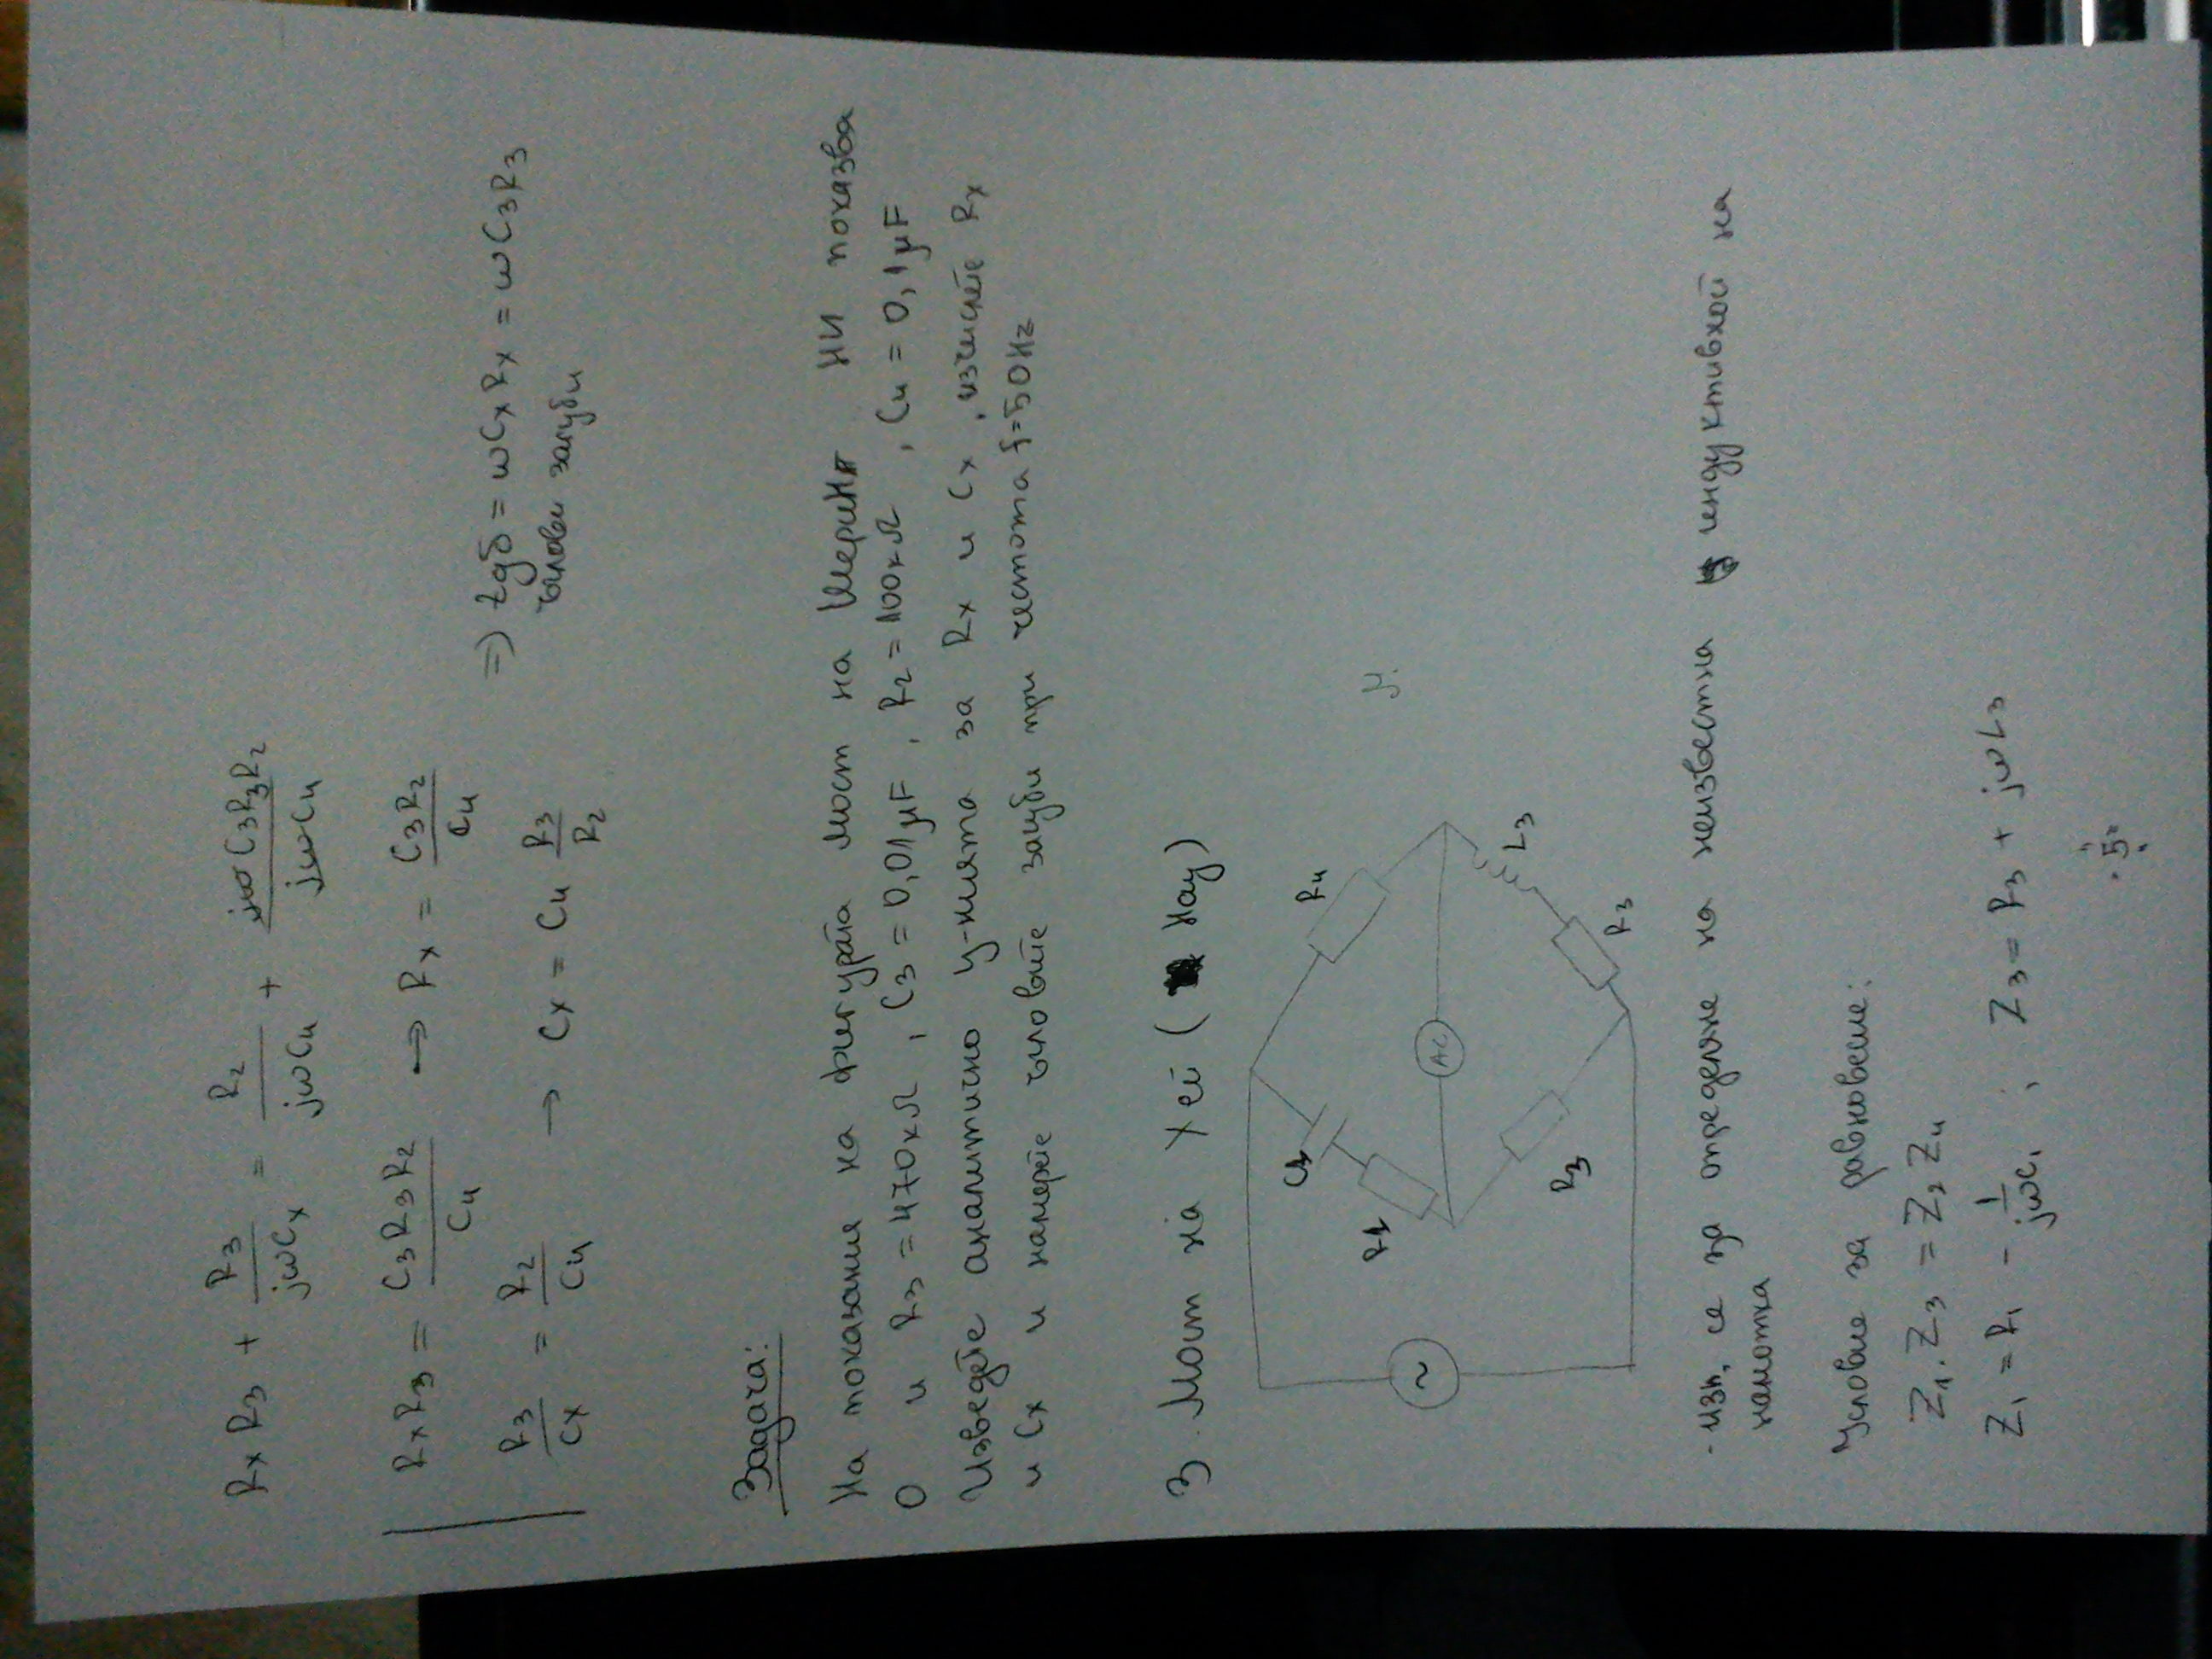 RxR3 + R3/jωCx = R2/jωC4 + jωC3R3R2/jωC4
RxR3 = C3R3R2/C4 → Rx = C3R2/C4
R3/Cx = R2/C4 → Cx = C4 R3/R2
=) tgδ = ωCxRx = ωC3R3
ъглови загуби
Задача:
На показания на фигурата мост на Шеринг НИ показва
0 и R3 = 470кΩ, C3 = 0,01μF, R2 = 100кΩ, C4 = 0,1μF
Изведете аналитично у-нията за Rx и Cx, изчислете Rx
и Cx и намерете ъгловите загуби при честота f=50Hz
3. Мост на Хей (Hay)
R4
C1
R1
AC
L3
R3
R3
~
- изп. се за определяне на неизвестна индуктивной на
намотка
Условие за равновесие:
Z1.Z3 = Z2Z4
Z1 = R1 - 1/jωC1 ; Z3 = R3 + jωL3
.5.